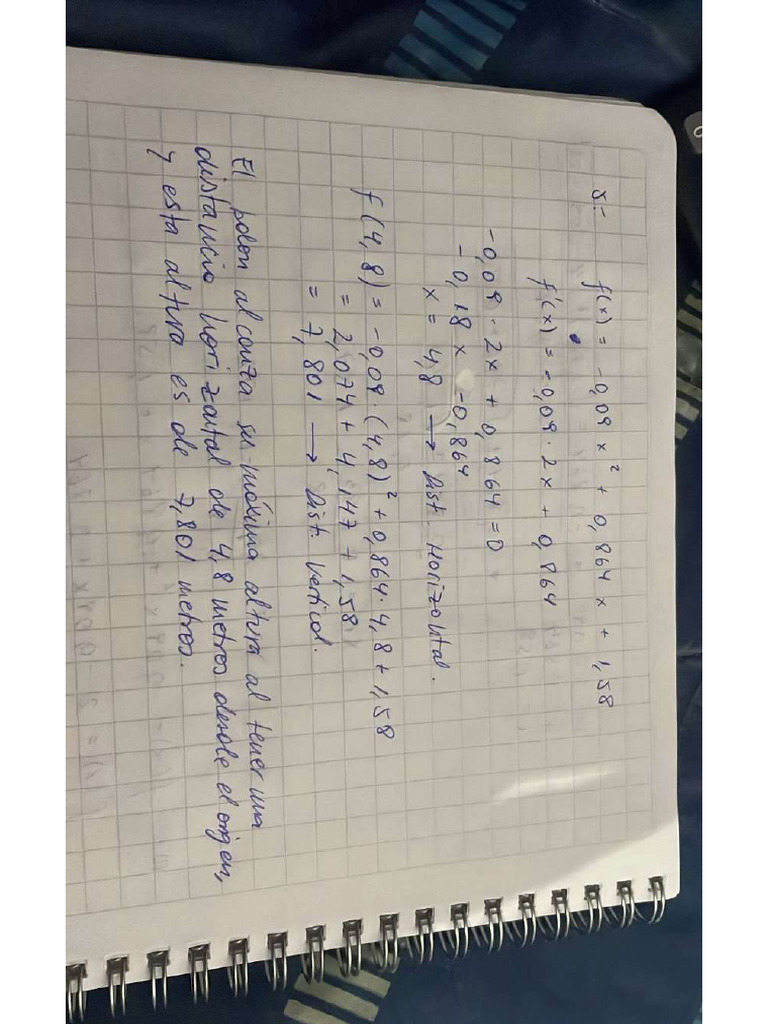 5=
f(x) = -0,09 x² + 0,864 x + 1,58
f'(x) = -0,09 · 2x + 0,864
-0,09 · 2x + 0,864 = 0
-0,18 x -0,864
x = 4,8 → Dist. Horizontal.
f(4,8) = -0,09 (4,8)² + 0,864 · 4,8 + 1,58
= 2,074 + 4,147 + 1,58
= 7,801 → Dist. Vertical.
El balon alcanza su máxima altura al tener una
distancia horizontal de 4,8 metros desde el origen,
y esta altura es de 7,801 metros.